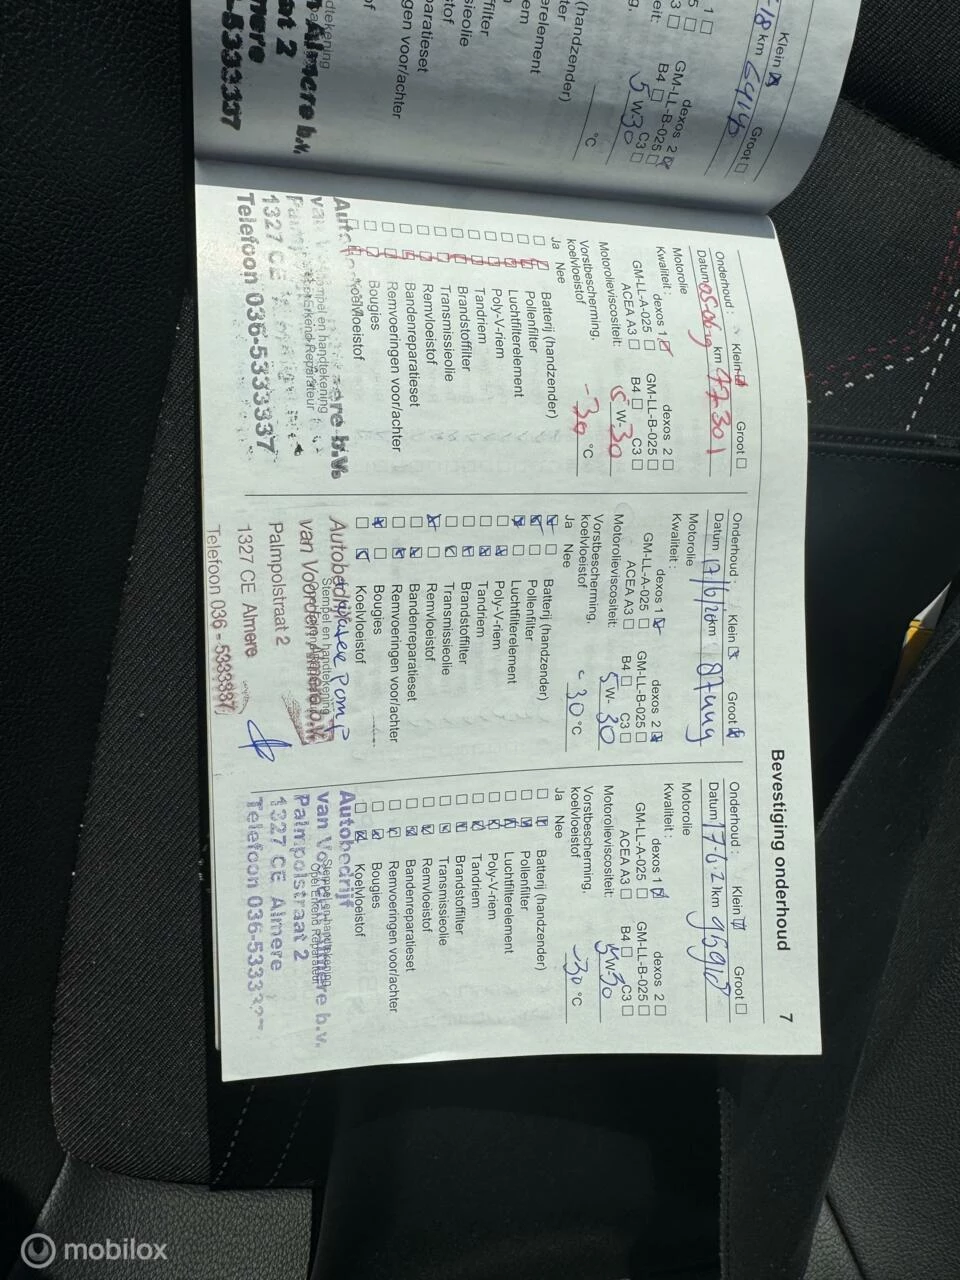 -18 km 64140
Klein ☒ Groot ☐
dexos 2 ☒
GM-LL-B-025 ☐
B4 ☐ C3 ☐
5 W 30
°C
(handzender)
ter
erelement
em
filter
sieolie
stof
paratieset
gen voor/achter
of
Almere b.v.
at 2
mere
-5333337
Bevestiging onderhoud 7
Onderhoud : Klein ☒ Groot ☐
Datum km 77301
Motorolie
Kwaliteit : dexos 1 ☒ dexos 2 ☐
GM-LL-A-025 ☐ GM-LL-B-025 ☐
ACEA A3 ☐ B4 ☐ C3 ☐
Motorolieviscositeit: 5 W- 30
Vorstbescherming,
koelvloeistof -30 °C
Ja Nee
Batterij (handzender)
Pollenfilter
Luchtfilterelement
Poly-V-riem
Tandriem
Brandstoffilter
Transmissieolie
Remvloeistof
Bandenreparatieset
Remvoeringen voor/achter
Bougies
Koelvloeistof
Stempel en handtekening
Erkend Reparateur
Autobe ere b.v.
van V
Palm
1327 CE
Telefoon 036-5333337
Onderhoud : Klein ☒ Groot ☒
Datum 17/6/20 km
Motorolie
Kwaliteit : dexos 1 ☒ dexos 2 ☒
GM-LL-A-025 ☐ GM-LL-B-025 ☐
ACEA A3 ☐ B4 ☐ C3 ☐
Motorolieviscositeit: 5 W- 30
Vorstbescherming,
koelvloeistof -30 °C
Ja Nee
Batterij (handzender)
Pollenfilter
Luchtfilterelement
Poly-V-riem
Tandriem
Brandstoffilter
Transmissieolie
Remvloeistof
Bandenreparatieset
Remvoeringen voor/achter
Bougies
Koelvloeistof
Water Pomp
Stempel en handtekening
Autobedrijf
van Voorden Almere b.v.
Palmpolstraat 2
1327 CE Almere
Telefoon 036 - 5333337
Onderhoud : Klein ☒ Groot ☐
Datum 17-6-21 km
Motorolie
Kwaliteit : dexos 1 ☒ dexos 2 ☐
GM-LL-A-025 ☐ GM-LL-B-025 ☐
ACEA A3 ☐ B4 ☐ C3 ☐
Motorolieviscositeit: 5 W- 30
Vorstbescherming,
koelvloeistof -30 °C
Ja Nee
Batterij (handzender)
Pollenfilter
Luchtfilterelement
Poly-V-riem
Tandriem
Brandstoffilter
Transmissieolie
Remvloeistof
Bandenreparatieset
Remvoeringen voor/achter
Bougies
Koelvloeistof
Stempel en handtekening
Opel Erkend Reparateur
Autobedrijf
van Voorden Almere b.v.
Palmpolstraat 2
1327 CE Almere
Telefoon 036-533333
mobilox